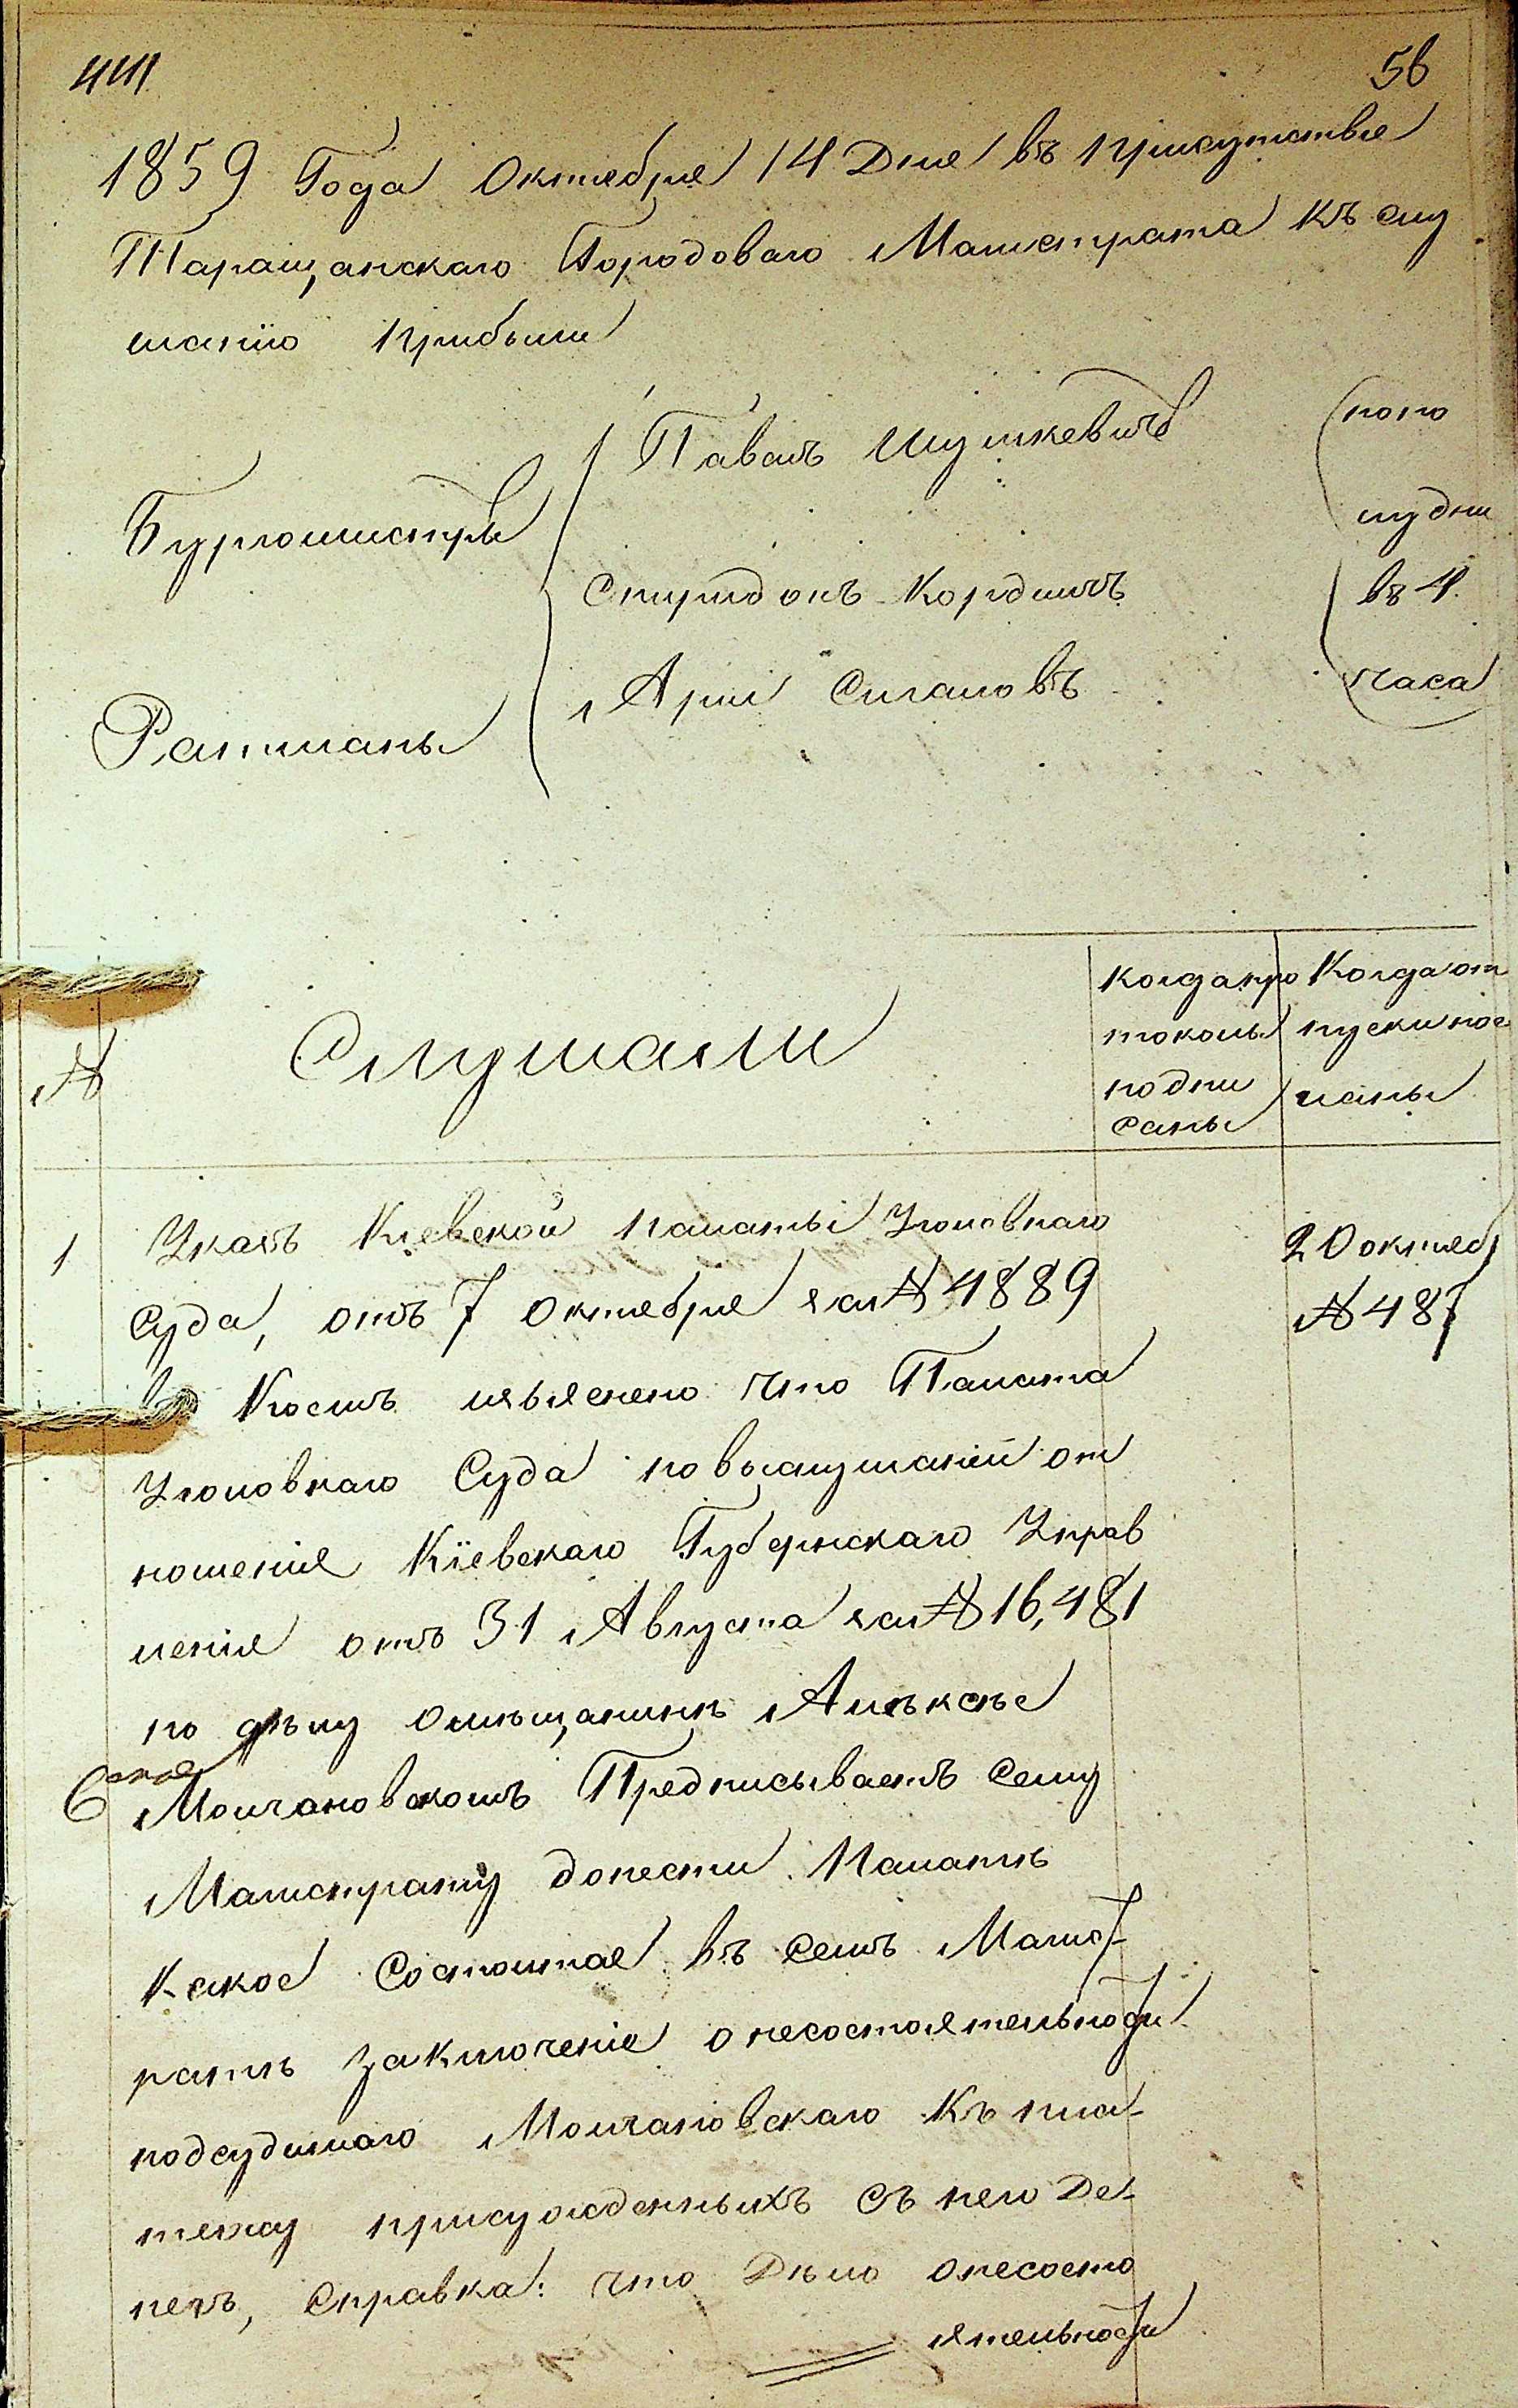 441
56
1859 Года Октебря 14 Дня въ присутствие
Таращанскаго Городоваго Магистрата къ слу
шанiю прибыли
Бургомистры
Павалъ Шушкевичъ
Спиридонъ Кордишъ
попо
лудни
въ 4
часа
Ратманы
Арiй Сигаловъ
№
Слушали
Когда про
токолы
подпи
саны
Когда от
пуски пос
ланы
1
Указъ Кiевской палаты Уголовнаго
Суда, отъ 7 Октебря за № 4889
20 октяб
№ 487
въ Коемъ изъяснено что Палата
Уголовнаго Суда по выслушанiи от
ношенiя Кiевскаго Губернскаго Управ
ленiя отъ 31 Августа за № 16,481
по делу омѣщанинѣ Алѣксѣе
Молчановскомъ Предписываетъ Сему
Магистрату донести Палатѣ
Какое Состоитае въ семъ Магист
ратѣ Заключенiе о несостоятельности
подсудимаго Молчановскаго Къ пла-
тежу присужденныхъ съ него Де-
негъ, Справка: что Дѣло онесосто
ятельности